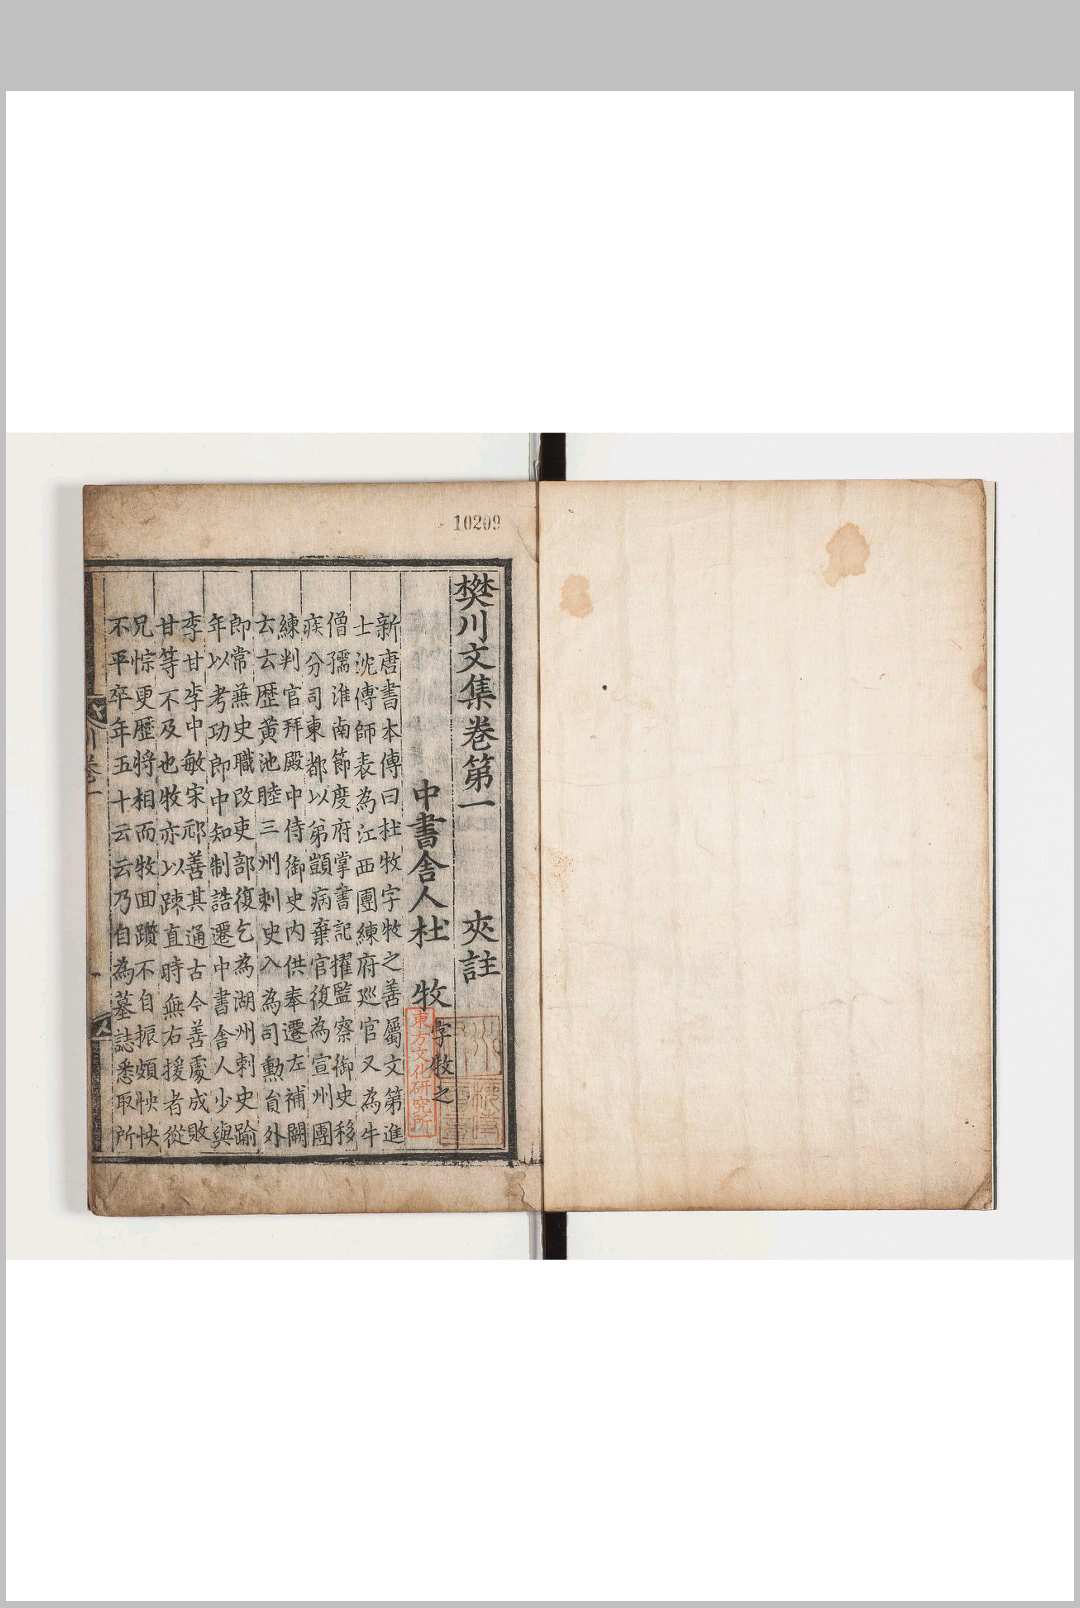 10209
樊川文集卷第一 夾註
中書舍人杜 牧字牧之
新唐書本傳曰杜牧字牧之善屬文第進
士沈傳師表為江西團練府巡官又為牛
僧孺淮南節度府掌書記擢監察御史移
疾分司東都以弟顗病棄官復為宣州團
練判官拜殿中侍御史內供奉遷左補闕
云云歷黃池睦三州刺史入為司勳員外
郎常兼史職改吏部復乞為湖州刺史踰
年以考功郎中知制誥遷中書舍人少與
李甘李中敏宋祁善其通古今善處成敗
甘等不及也牧亦以踈直時無右援者從
兄悰更歷將相而牧回躓不自振頗怏怏
不平卒年五十云云乃自為墓誌悉取所
東方文化研究所
川卷一